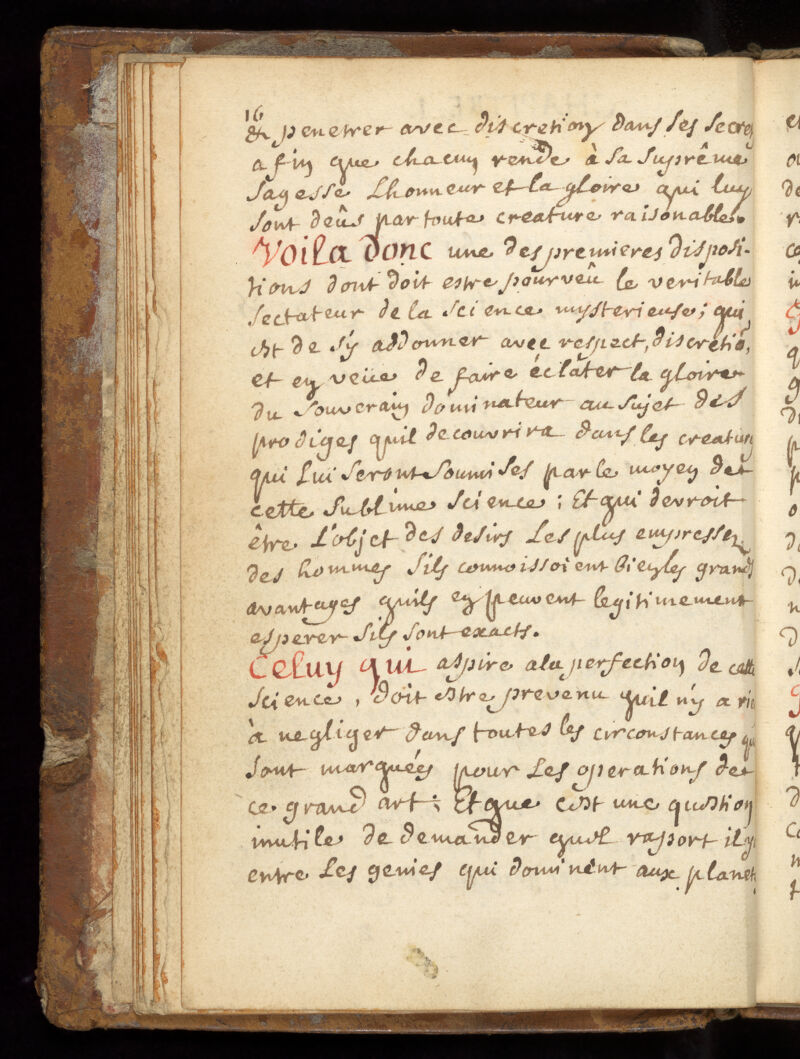 16
& penetrer avec discretion dans ses secre
afin que chacun rende à sa suprême
sagesse Lhonneur et la gloire qui luy
sont deûs par toute creature raisonable.
Voila donc une des premieres disposi-
tions dont doit estre pourveû le veritable
sectateur de la science mysterieuse; qui
est de s'y addonner avec respect, discretiõ,
et en veüe de faire éclâter la gloire
du souverain dominateur au sujet des
prodiges quil decouvrira dans les creatur
qui Lui seront soumises par le moyen de
cette sublime science; Et qui devroit
être L'objet des desirs Les plus empressez
des hommes sils connoissoient bien les grands
avantages quils en peuvent legitimement
esperer sils sont exacts.
Celuy qui aspire ala perfection de cette
science, doit estre prevenu quil n'y a ri
à negliger dans toutes les circonstances qu
sont marquées pour Les operations de
ce grand art; Et que cest une question
inutile de demander quel rapport il y
entre Les genies qui dominent aux planet